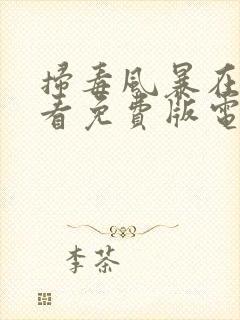 掃毒風暴在
看免費版電
李茶